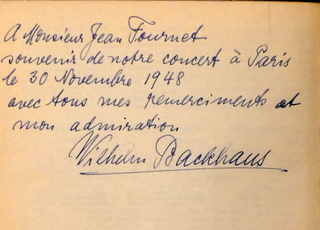 A Monsieur Jean Fournet
souvenir de notre concert à Paris
le 30 Novembre 1948
avec tous mes remerciments et
mon admiration
Wilhelm Backhaus